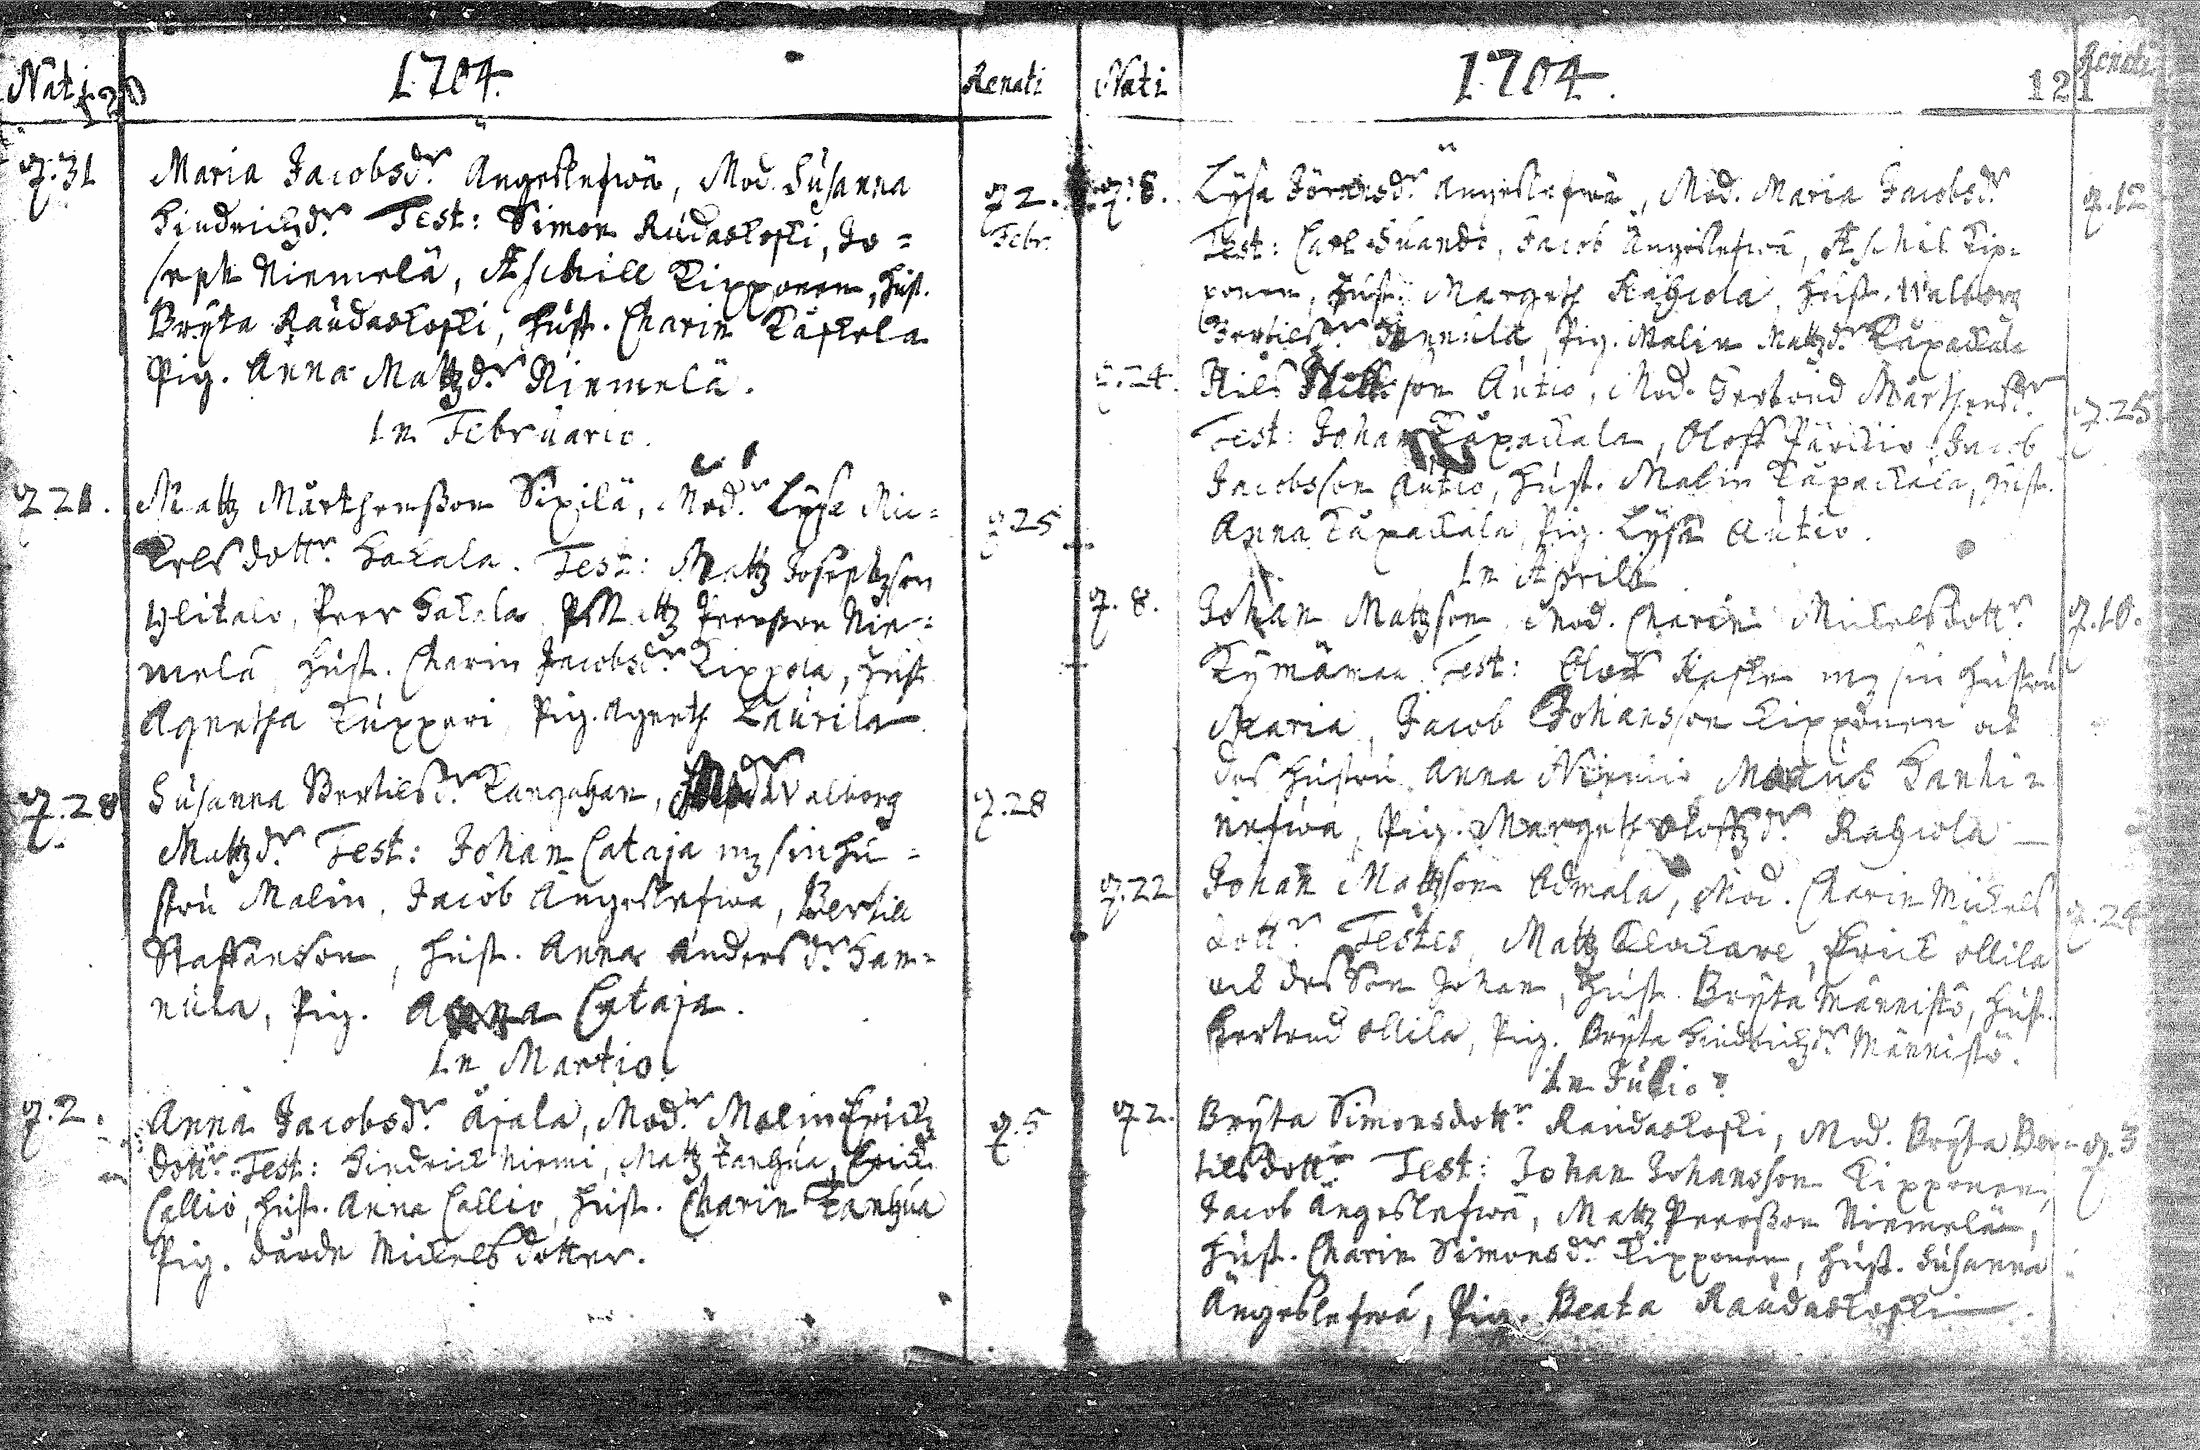 Nati 120
1704.
Renati
d. 31
Maria Jacobsdr. Ängeslefwä, Mod. Susanna
Hindrichzdr. Test: Simon Raudaskoski, Jo=
seph Niemelä, Aschill Kipponen, hust.
Bryta Raudaskoski, hust. Charin Käskela
Pig. Anna Mattzdr. Niemelä.
d 2.
Febr.
In Februario.
d 21.
Mattz Mårthensson Sipilä, Modr. Lysa Mic=
kelsdottr. Hakala. Test: Mattz Josephzson
Ylitalo, Peer Hakala, Mattz Peersson Nie=
melä, hust. Charin Jacobsdr. Kippola, hust.
Agnetha Tuppuri, Pig. Agneth Laurila.
d 25
d. 28
Susanna Bertilsdr. Kangahan, Modr Walborg
Mattzdr. Test: Johan Cataja mz sin hu=
stru Malin, Jacob Ängeslefwä, Bertill
Staffansson, hust. Anna Andersdr. Han=
nula, Pig. Anna Cataja.
d. 28
In Martio.
d. 2.
Anna Jacobsdr. Åjala, Modr. Malin Erichz
dottr. Test: Hindrich Niemi, Mattz Tanhua, Erich
Callio, hust. Anna Callio, hust. Charin Tanhua
Pig. Dårde Mickelsdotter.
d. 5
Nati
1704.
Renati
121
d. 8.
Lysa Göransdr. Ängeslefwä, Mod. Maria Jacobsdr
Test: Carl Suando, Jacob Ängeslefwä, Aschil Kip=
ponen, hust. Margeth Rahiola, hust. Walborg
Bertilsdr. Pig. Malin Mattzdr. Kåpackala
d. 12
d. 24.
Nils son Autio, Mod. Gertrud Mårthensdr.
Test: Johan Kåpackala, Oloff Jacob
Jacobsson Autio, hust. Malin Kåpackala, hust.
Anna Kåpackala, Pig. Lysa Autio.
d. 25
In Aprili
d. 8.
Johan Mattzson, Mod. Charin Mickelsdottr.
Kymämaa. Test: Oloff mz sin hustru
Maria, Jacob Johansson Kipponen ock
des hustru Anna Niemi, Marcus Hanhi=
nefwa, Pig. Margeth Oloffzdr. Rahiola
d. 10.
d. 22
Johan Mattzson Ådmala, Mod. Charin Mickels
dottr. Testes, Mattz Klockare, Erich Ollila
ock des Son Johan, hust. Bryta Männistö, hust.
Gertrud Ollila, Pig. Bryta Hindrichzdr. Männistö.
d. 24
In Julio
d 2.
Bryta Simonsdottr. Raudaskoski, Mod. Bryta Ber=
tilsdottr. Test: Johan Johansson Kipponen,
Jacob Ängeslefwä, Mattz Peersson Niemelä,
hust. Charin Simonsdr. Kipponen, hust. Susanna
Ängeslefwä, Pig. Beata Raudaskoski.
d. 3